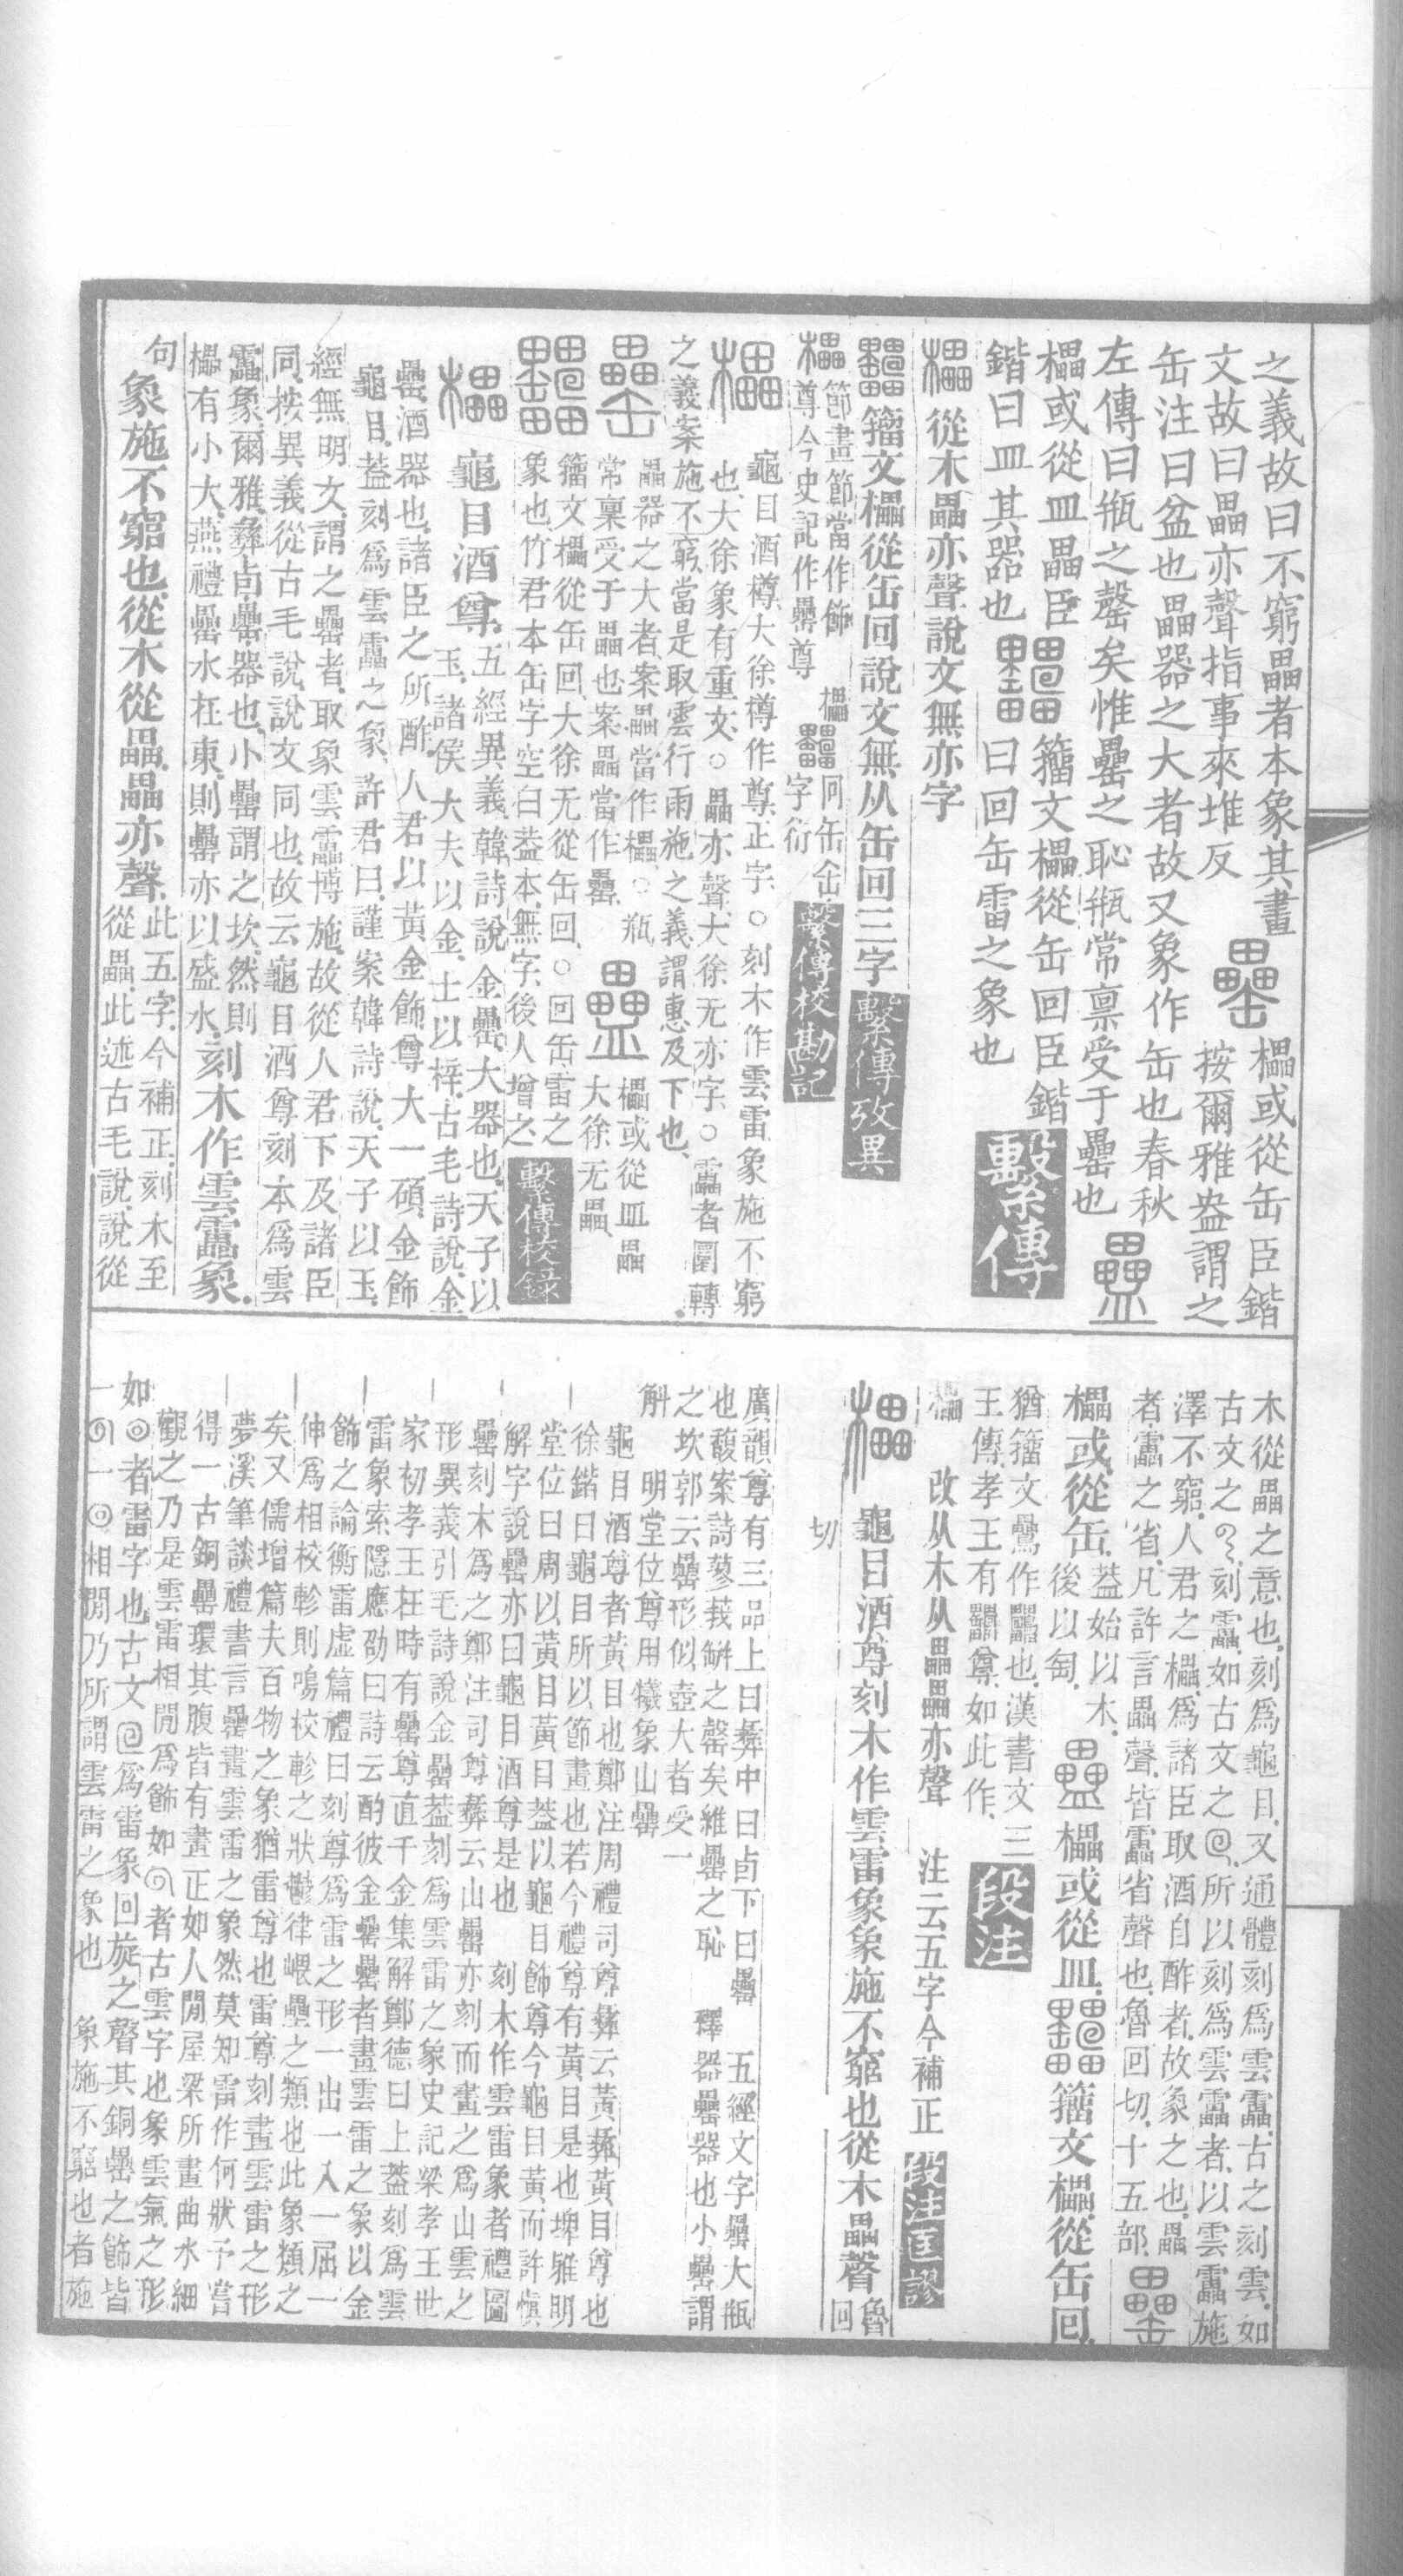 之義故曰不窮畾者本象其畫
櫑或從缶臣鍇
文故曰畾亦聲指事來堆反
按爾雅盎謂之
缶注曰盆也畾器之大者故又象作缶也春秋
左傳曰瓶之罄矣惟罍之恥瓶常禀受于罍也
櫑或從皿畾臣
籒文櫑從缶回臣鍇
鍇曰皿其器也
曰回缶雷之象也
繫傳
櫑從木畾亦聲說文無亦字
籒文櫑從缶回說文無从缶回三字
繫傳攷異
節畫節當作飾
尊今史記作罍尊
回缶缶
字衍
繫傳校勘記
櫑
龜目酒樽大徐樽作尊正字○刻木作雲雷象施不窮
也大徐象有重文○畾亦聲大徐无亦字○靁者圜轉
之義案施不窮當是取雲行雨施之義謂惠及下也
畾器之大者案畾當作櫑○瓶
常稟受于畾也案畾當作罍
櫑或從皿畾
大徐无畾
籒文櫑從缶回大徐无從缶回○回缶雷之
象也竹君本缶字空白葢本無字後人增之
繫傳校錄
櫑
龜目酒尊
五經異義韓詩說金罍大器也天子以
玉諸侯大夫以金士以梓古毛詩說金
罍酒器也諸臣之所酢人君以黃金飾尊大一碩金飾
龜目葢刻爲雲靁之象許君曰謹案韓詩說天子以玉
經無明文謂之罍者取象雲靁博施故從人君下及諸臣
同按異義從古毛說說文同也故云龜目酒尊刻木爲雲
靁象爾雅彝卣罍器也小罍謂之坎然則
櫑有小大燕禮罍水在東則罍亦以盛水
刻木作雲靁象
句
象施不窮也從木從畾畾亦聲
此五字今補正刻木至
從畾此述古毛說說從
木從畾之意也刻爲龜目又通體刻爲雲靁古之刻雲如
古文之刻靁如古文之所以刻爲雲靁者以雲靁施
澤不窮人君之櫑爲諸臣取酒自酢者故象之也畾
者靁之省凡許言畾聲皆靁省聲也魯回切十五部
櫑或從缶
葢始以木
後以匋
櫑或從皿
籒文櫑從缶回
猶籒文也漢書文三
王傳孝王有尊如此作
段注
改从木从畾畾亦聲　注云五字今補正
段注匡謬
櫑
龜目酒尊刻木作雲雷象象施不窮也從木畾聲
魯回
切
廣韻尊有三品上曰彝中曰卣下曰罍　五經文字罍大瓶
也馥案詩蓼莪缾之罄矣維罍之恥　釋器罍器也小罍謂
之坎郭云罍形似壺大者受一
斛　明堂位尊用犧象山罍
龜目酒尊者黃目也鄭注周禮司尊彝云黃彝黃目尊也
徐鍇曰龜目所以節畫也若今禮尊有黃目是也埤雅明
堂位曰周以黃目黃目葢以龜目飾尊今龜目黃而許愼
解字說罍亦曰龜目酒尊是也　刻木作雲雷象者禮圖
罍刻木爲之鄭注司尊彝云山罍亦刻而畫之爲山雲之
形異義引毛詩說金罍葢刻爲雲雷之象史記梁孝王世
家初孝王在時有罍尊直千金集解鄭德曰上葢刻爲雲
雷象索隱應劭曰詩云酌彼金罍罍者畫雲雷之象以金
飾之論衡雷虛篇禮曰刻尊爲雷之形一出一入一屈一
伸爲相校軫則鳴校軫之狀鬱律㟪壘之類也此象類之
矣又儒增篇夫百物之象猶雷尊也雷尊刻畫雲雷之形
夢溪筆談禮書言罍畫雲雷之象然莫知雷作何狀予嘗
得一古銅罍環其腹皆有畫正如人閒屋梁所畫曲水細
觀之乃是雲雷相閒爲飾如者古雲字也象雲氣之形
如者雷字也古文爲雷象回旋之聲其銅罍之飾皆
一一相閒乃所謂雲雷之象也　象施不窮也者施